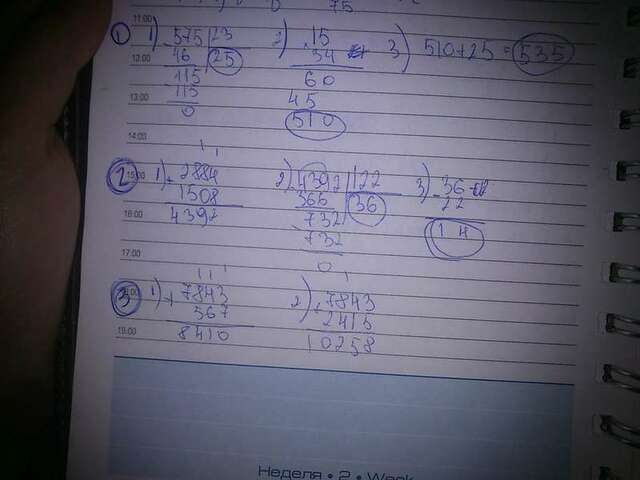 75
11:00
① 1) 575 | 23
46 | 25
115
115
0
2) 15
34
60
45
510
3) 510+25=535
12:00
13:00
14:00
② 1) + 2884
1508
4392
2) 4392 | 122
366 | 36
732
732
0
3) - 36
22
14
15:00
16:00
17:00
③ 1) + 7843
567
8410
2) + 7843
2415
10258
19:00
Неделя • 2 • Week